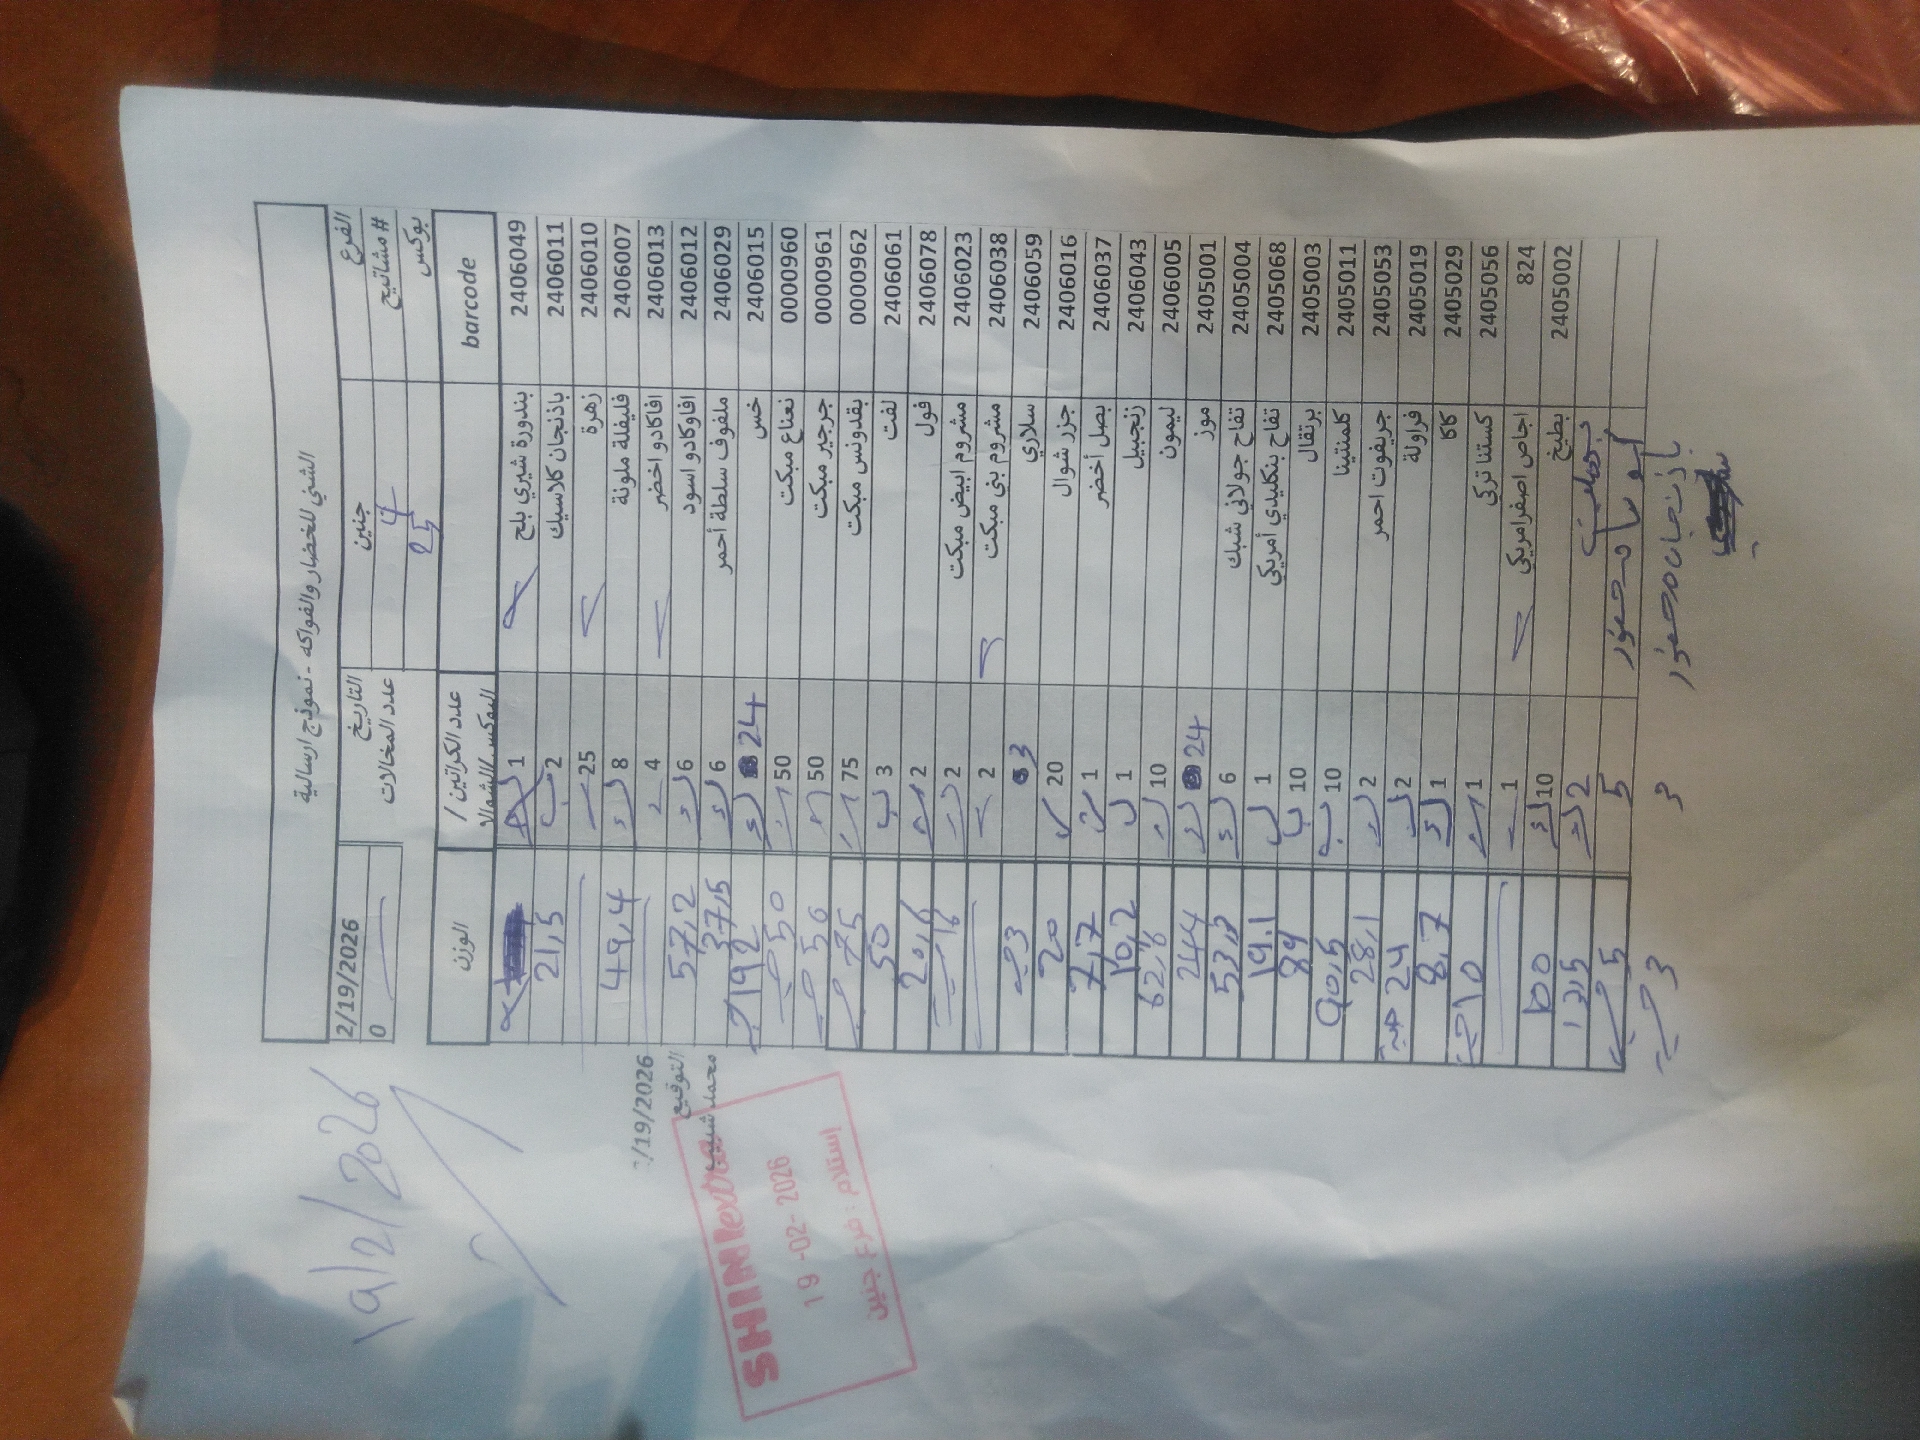 الشني للخضار والفواكه - نموذج ارسالية
الفرع جنين التاريخ 2/19/2026
# مشاتيح 4 عدد المخالات 0
بوكس 25
barcode عدد الكراتين / البوكس/الشوالات الوزن
2406049 بندورة شيري بلح 1
2406011 باذنجان كلاسيك 2 21,5
2406010 زهرة 25
2406007 فليفلة ملونة 8 49,4
2406013 افاكادو اخضر 4
2406012 افاوكادو اسود 6 57,2
2406029 ملفوف سلطة أحمر 6 37,5
2406015 خس 24 192
0000960 نعناع مبكت 50 50
0000961 جرجير مبكت 50 50
0000962 بقدونس مبكت 75 75
2406061 لفت 3 50
2406078 فول 2 20,6
2406023 مشروم ابيض مبكت 2 16
2406038 مشروم بني مبكت 2
2406059 سلاري 3 3
2406016 جزر شوال 20 20
2406037 بصل أخضر 1 7,7
2406043 زنجبيل 1 10,2
2406005 ليمون 10 62,6
2405001 موز 24 244
2405004 تفاح جولاني شبك 6
2405068 تفاح بنكليدي أمريكي 1 19.1
2405003 برتقال 10 89
2405011 كلمنتينا 10 90,5
2405053 جريفوت احمر 2 28,1
2405019 فراولة 2 24
2405029 كاكا 1 8,7
2405056 كستنا تركي 1 10
824 اجاص اصفرامريكي 1
2405002 بطيخ 10 100
2
5 5
باذنجان محفور 3 3
19/2/2026
2/19/2026
التوقيع
محمد شبيب
SHINI extra
19 -02- 2026
إستلام : فرع جنين